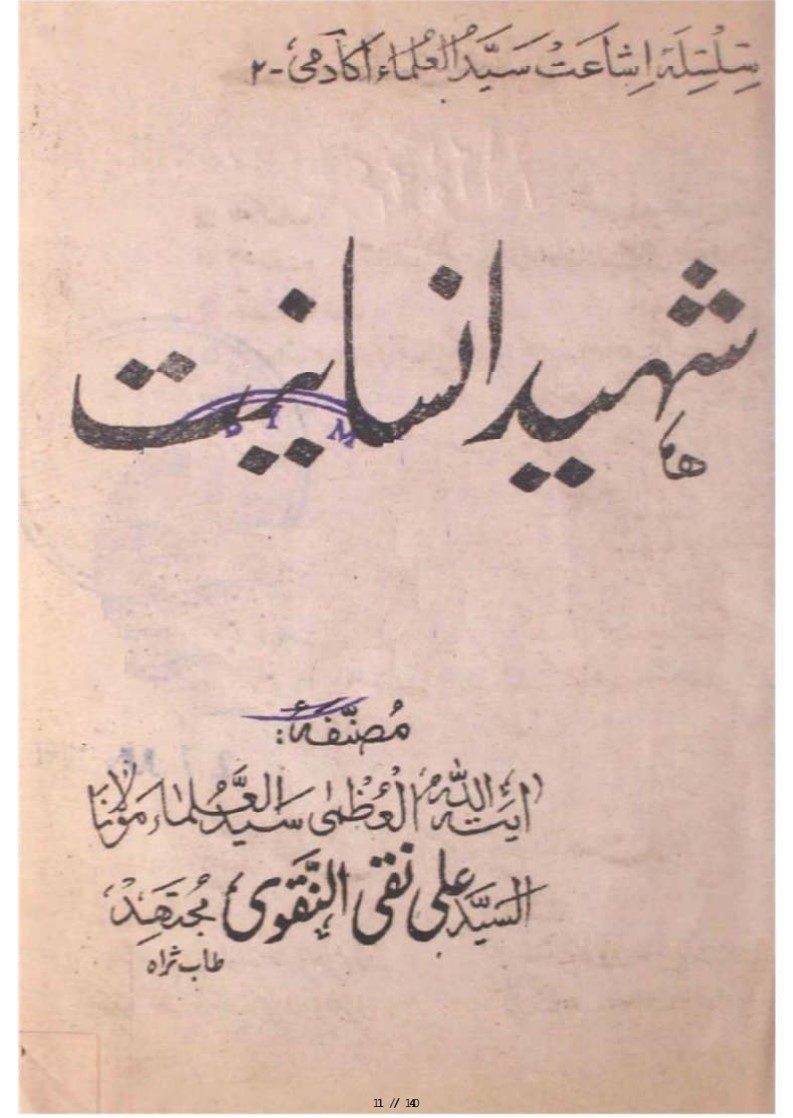 سِلْسِلَۂ اِشاعَتْ سَیَّدُ العُلَماء اکادمی - ۲
شہید انسانیت
مُصنّفۂ:
اٰیَتہ اللّٰہ العُظْمٰی سَیّدُ العُلَماء مَوْلانَا
السیَّد علی نقی النَّقَوی مُجتَهِدْ
طاب ثراہ
DIM
11 // 140